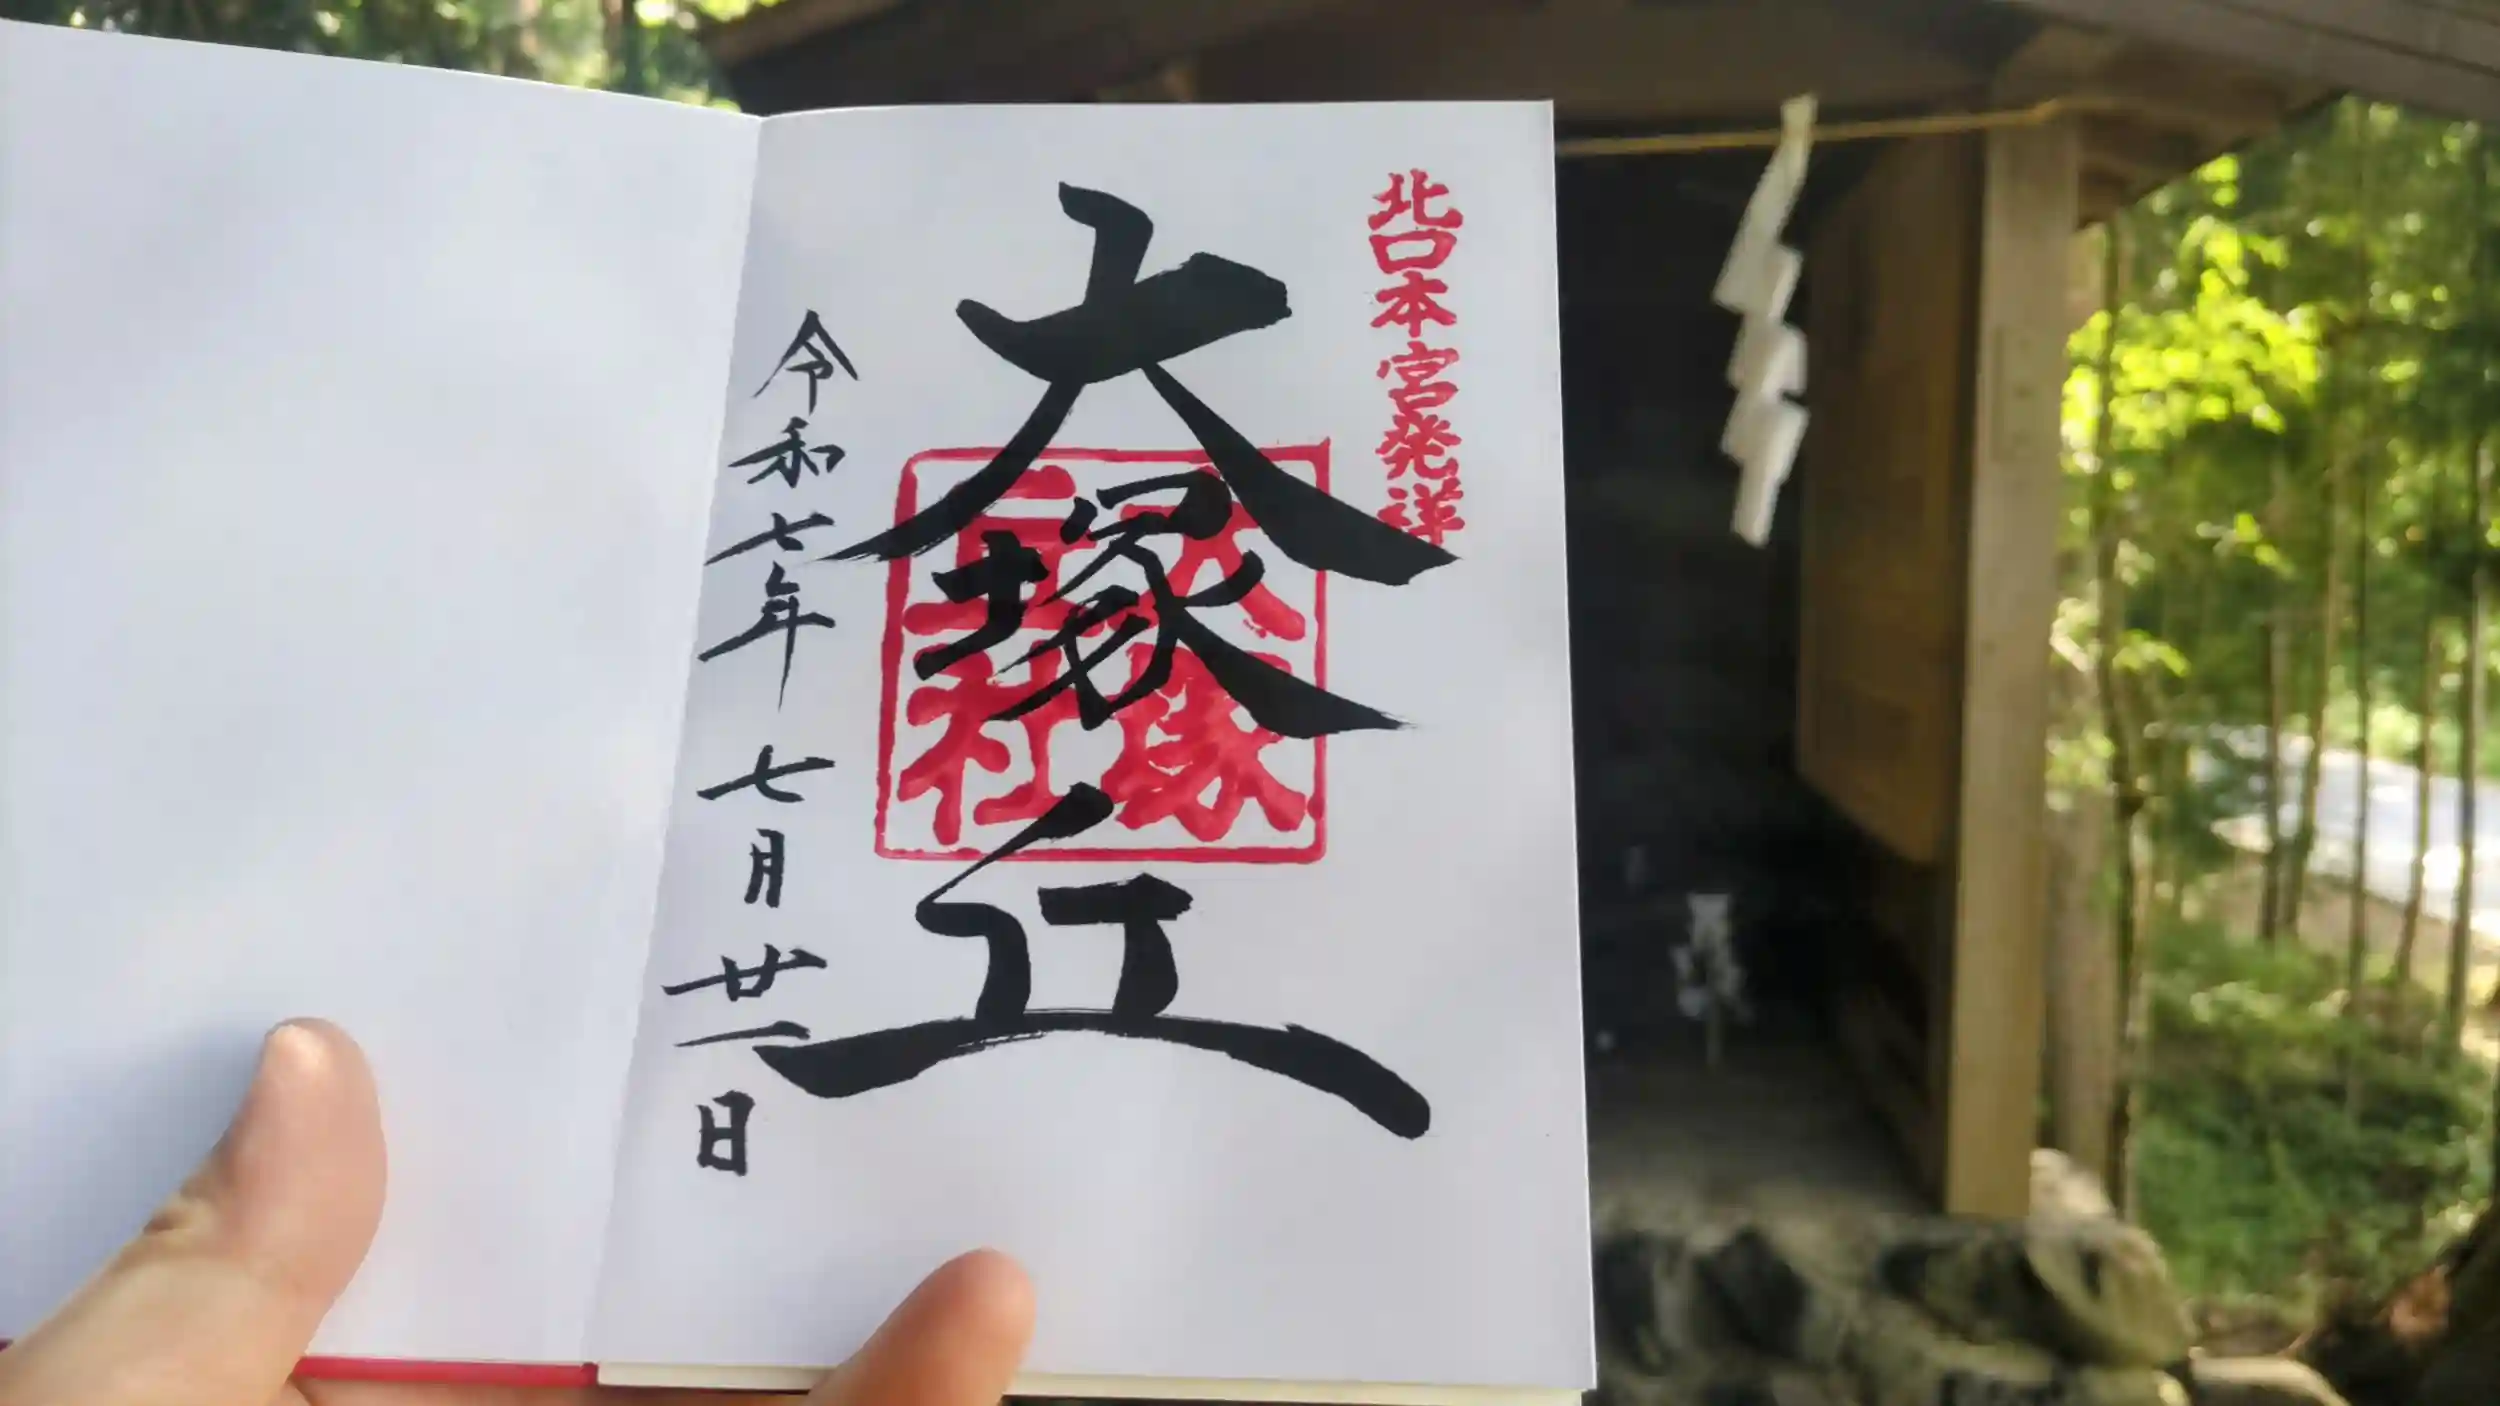 北口本宮発祥
大塚丘
大塚
丘社
令和七年七月廿一日